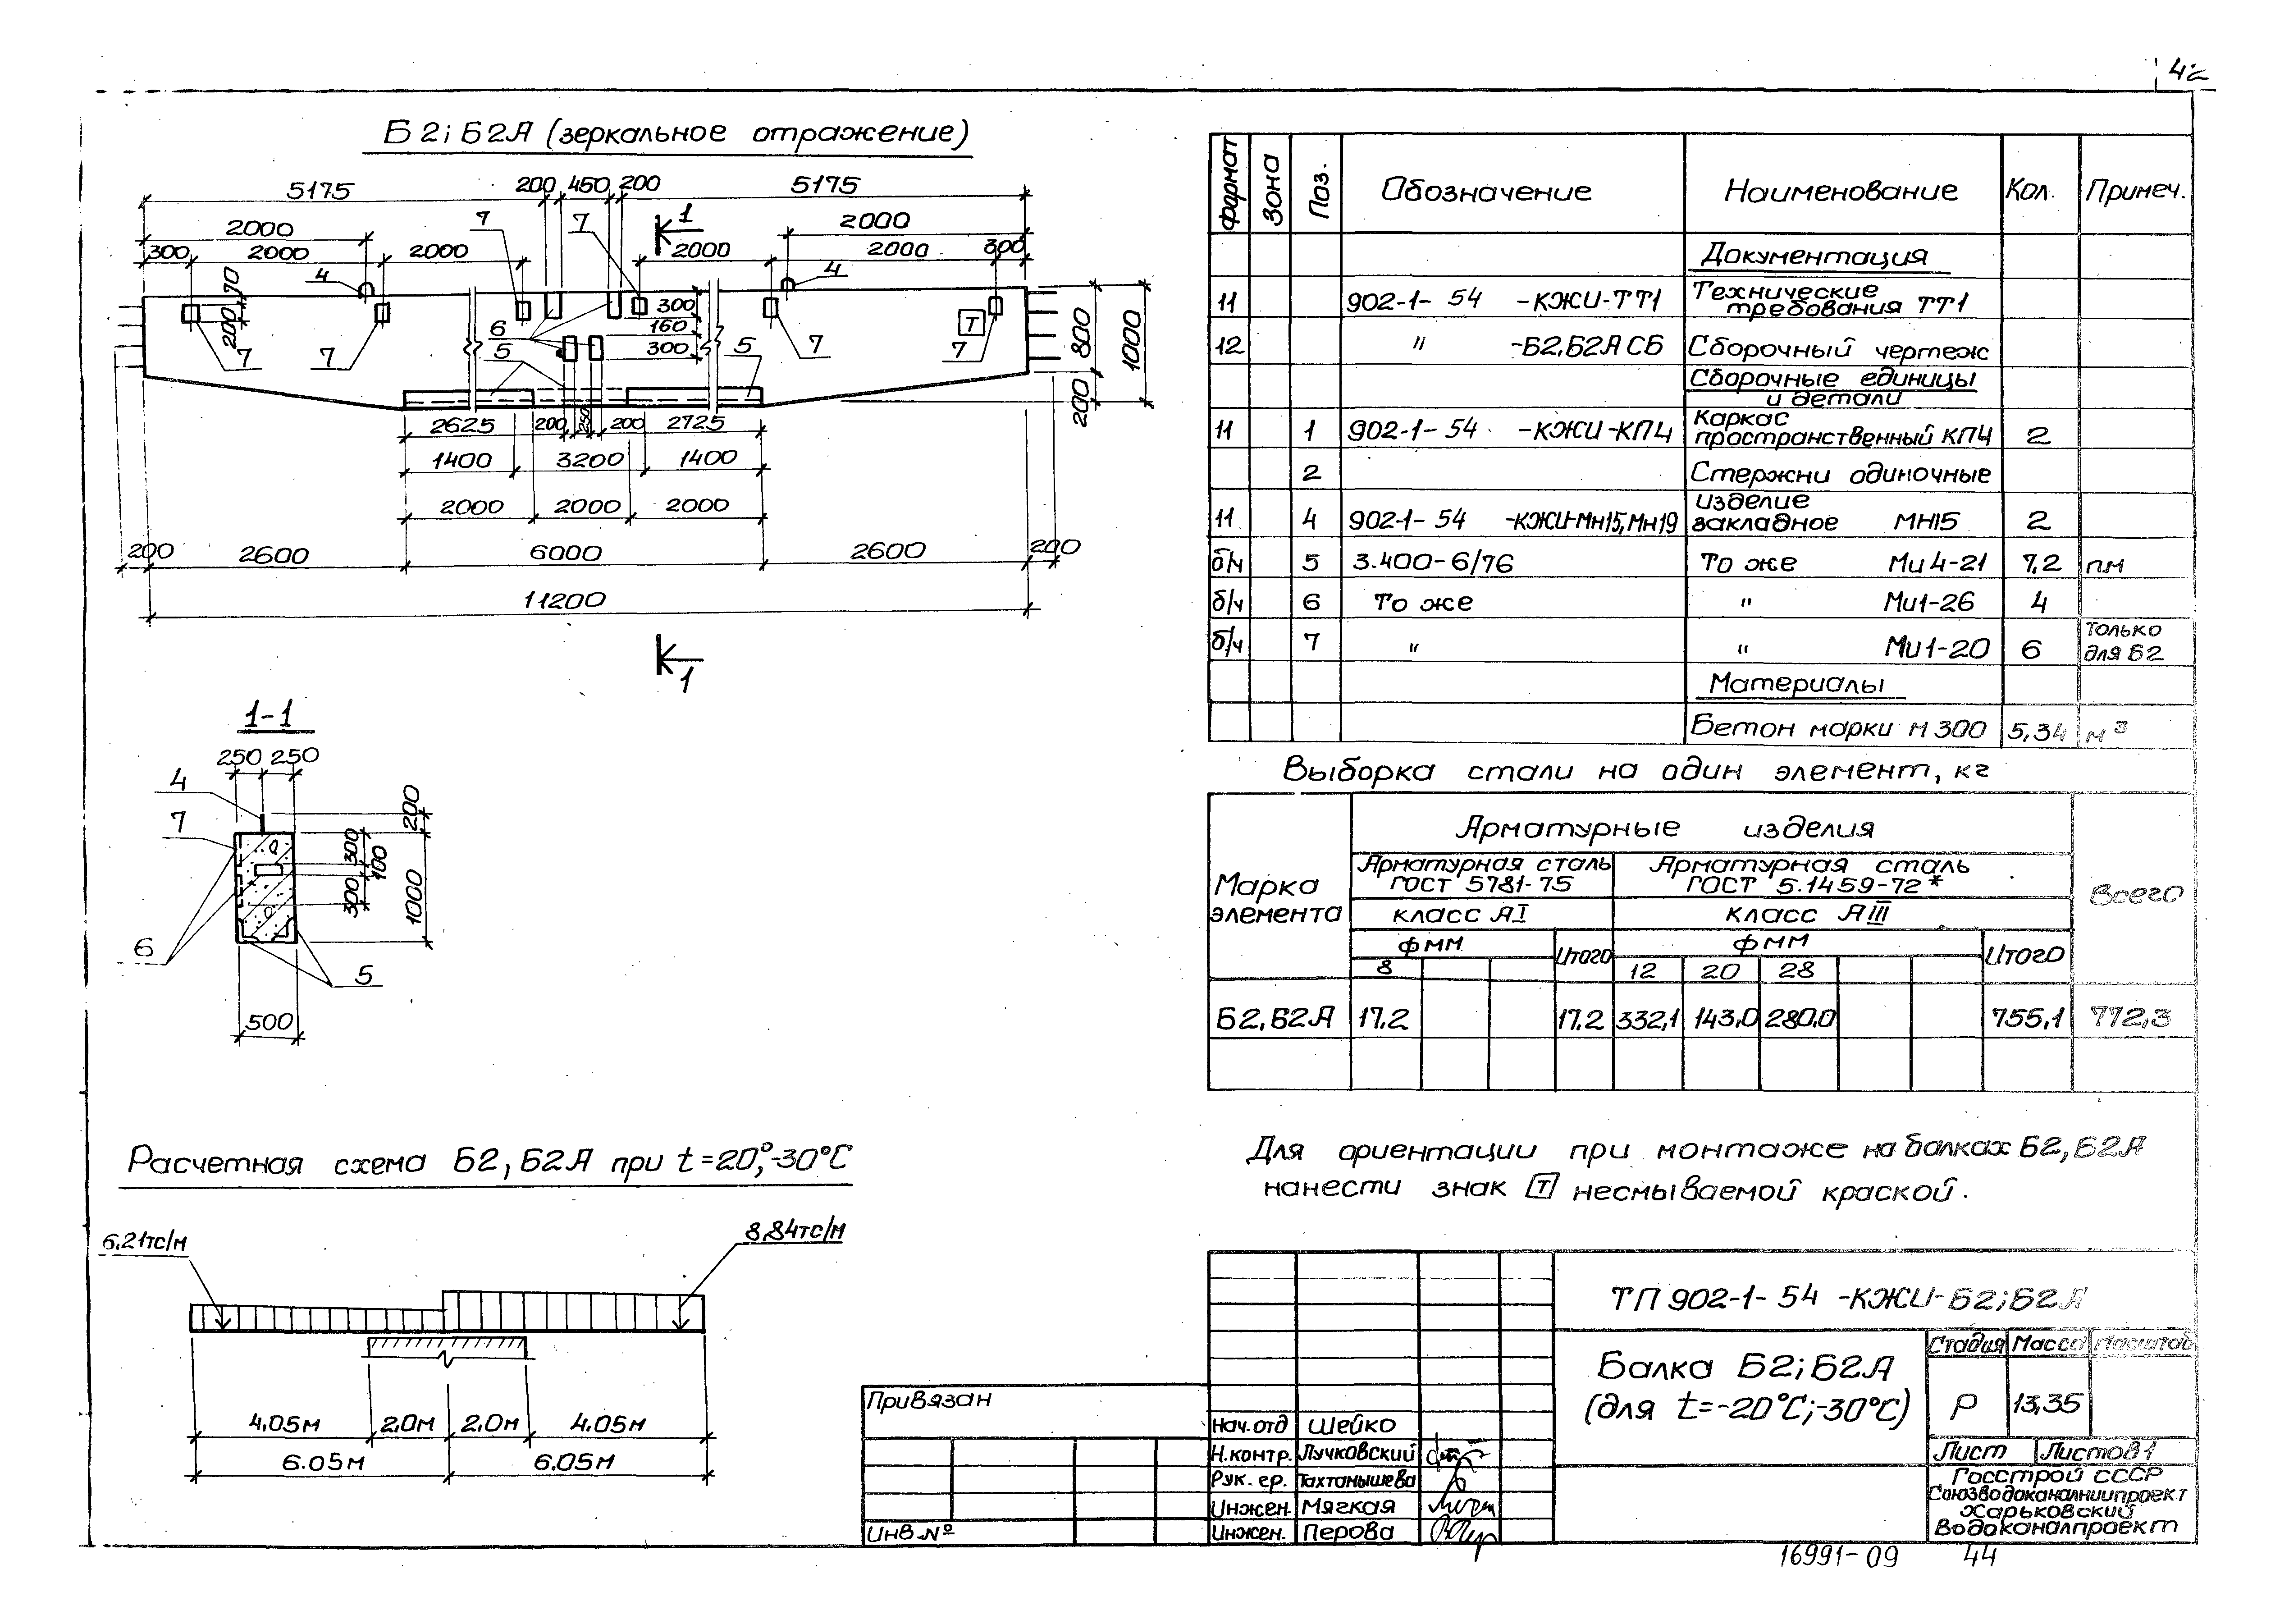 42
Б2; Б2А (зеркальное отражение)
5175 200 450 200 5175
2000 7 7 1 2000
300 2000 2000 2000 2000 300
4 4
70
200
7 7 6 5 300 160 300 5 7 Т 7
800 1000
200
2625 200 250 200 2725
1400 3200 1400
2000 2000 2000
200 2600 6000 2600 200
11200
1
1-1
250 250
4
7
200
300 100
300 1000
6
5
500
Расчетная схема Б2, Б2А при t=20°,-30°С
6.21тс/м
8,84тс/м
4.05м 2.0м 2.0м 4.05м
6.05м 6.05м
формат Зона Поз. Обозначение Наименование Кол. Примеч.
Документация
11 902-1- 54 -КЖИ-ТТ1 Технические требования ТТ1
12 " -Б2,Б2А СБ Сборочный чертеж
Сборочные единицы
и детали
11 1 902-1- 54 -КЖИ-КП4 Каркас пространственный КП4 2
2 Стержни одиночные
11 4 902-1- 54 -КЖИ-Мн15,Мн19 изделие закладное МН15 2
б/ч 5 3.400-6/76 То же Ми 4-21 7,2 пм
б/ч 6 То же " Ми1-26 4
б/ч 7 " " Ми1-20 6 только для Б2
Материалы
Бетон марки М 300 5,34 м³
Выборка стали на один элемент, кг
Марка элемента
Арматурные изделия
Всего
Арматурная сталь ГОСТ 5781-75
Арматурная сталь ГОСТ 5.1459-72*
класс АI класс АIII
Ф мм Итого Ф мм Итого
8 12 20 28
Б2,Б2А 17.2 17.2 332,1 143,0 280,0 755,1 772,3
Для ориентации при монтаже на балках Б2, Б2А
нанести знак Т несмываемой краской.
ТП 902-1- 54 -КЖИ- Б2; Б2А
Балка Б2; Б2А
(для t=-20°С;-30°С)
Стадия Масса Масштаб
Р 13,35
Лист Листов 1
Госстрой СССР
Союзводоканалниипроект
Харьковский
Водоканалпроект
Привязан
Инв.№
Нач.отд Шейко
Н.контр. Лучковский
Рук. гр. Тахтанышева
Инжен. Мягкая
Инжен. Перова
16991-09 44